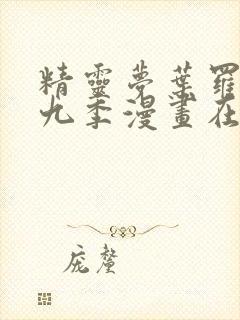 精靈夢葉羅
九季漫畫在
庞鳌